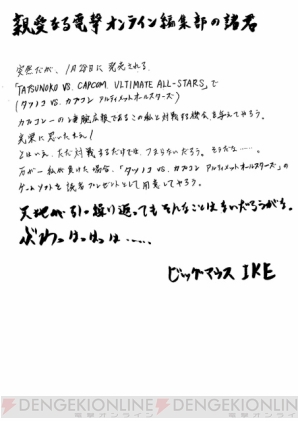 親愛なる電撃オンライン編集部の諸君
突然だが、1月28日に発売される、
「TATSUNOKO VS. CAPCOM ULTIMATE ALL-STARS」で
(タツノコ VS. カプコン アルティメットオールスターズ)
カプコンの 広報であるこの私と対戦する機会を与えてやろう。
光栄に思いたまえ!
とはいえ、ただ対戦するだけでは、つまらないだろう。そうだな……。
万が一私が負けた場合、「タツノコ VS. カプコン アルティメットオールスターズ」の
ゲームソフトを読者プレゼントとして用意してやろう。
天地が引っ繰り返ってもそんなことはないだろうがな。
ぶわっはっはっは……
ビッグマウス IKE
DENGEKIONLINE
電撃オンライン
DENGEKIONLINE
電撃オンライン